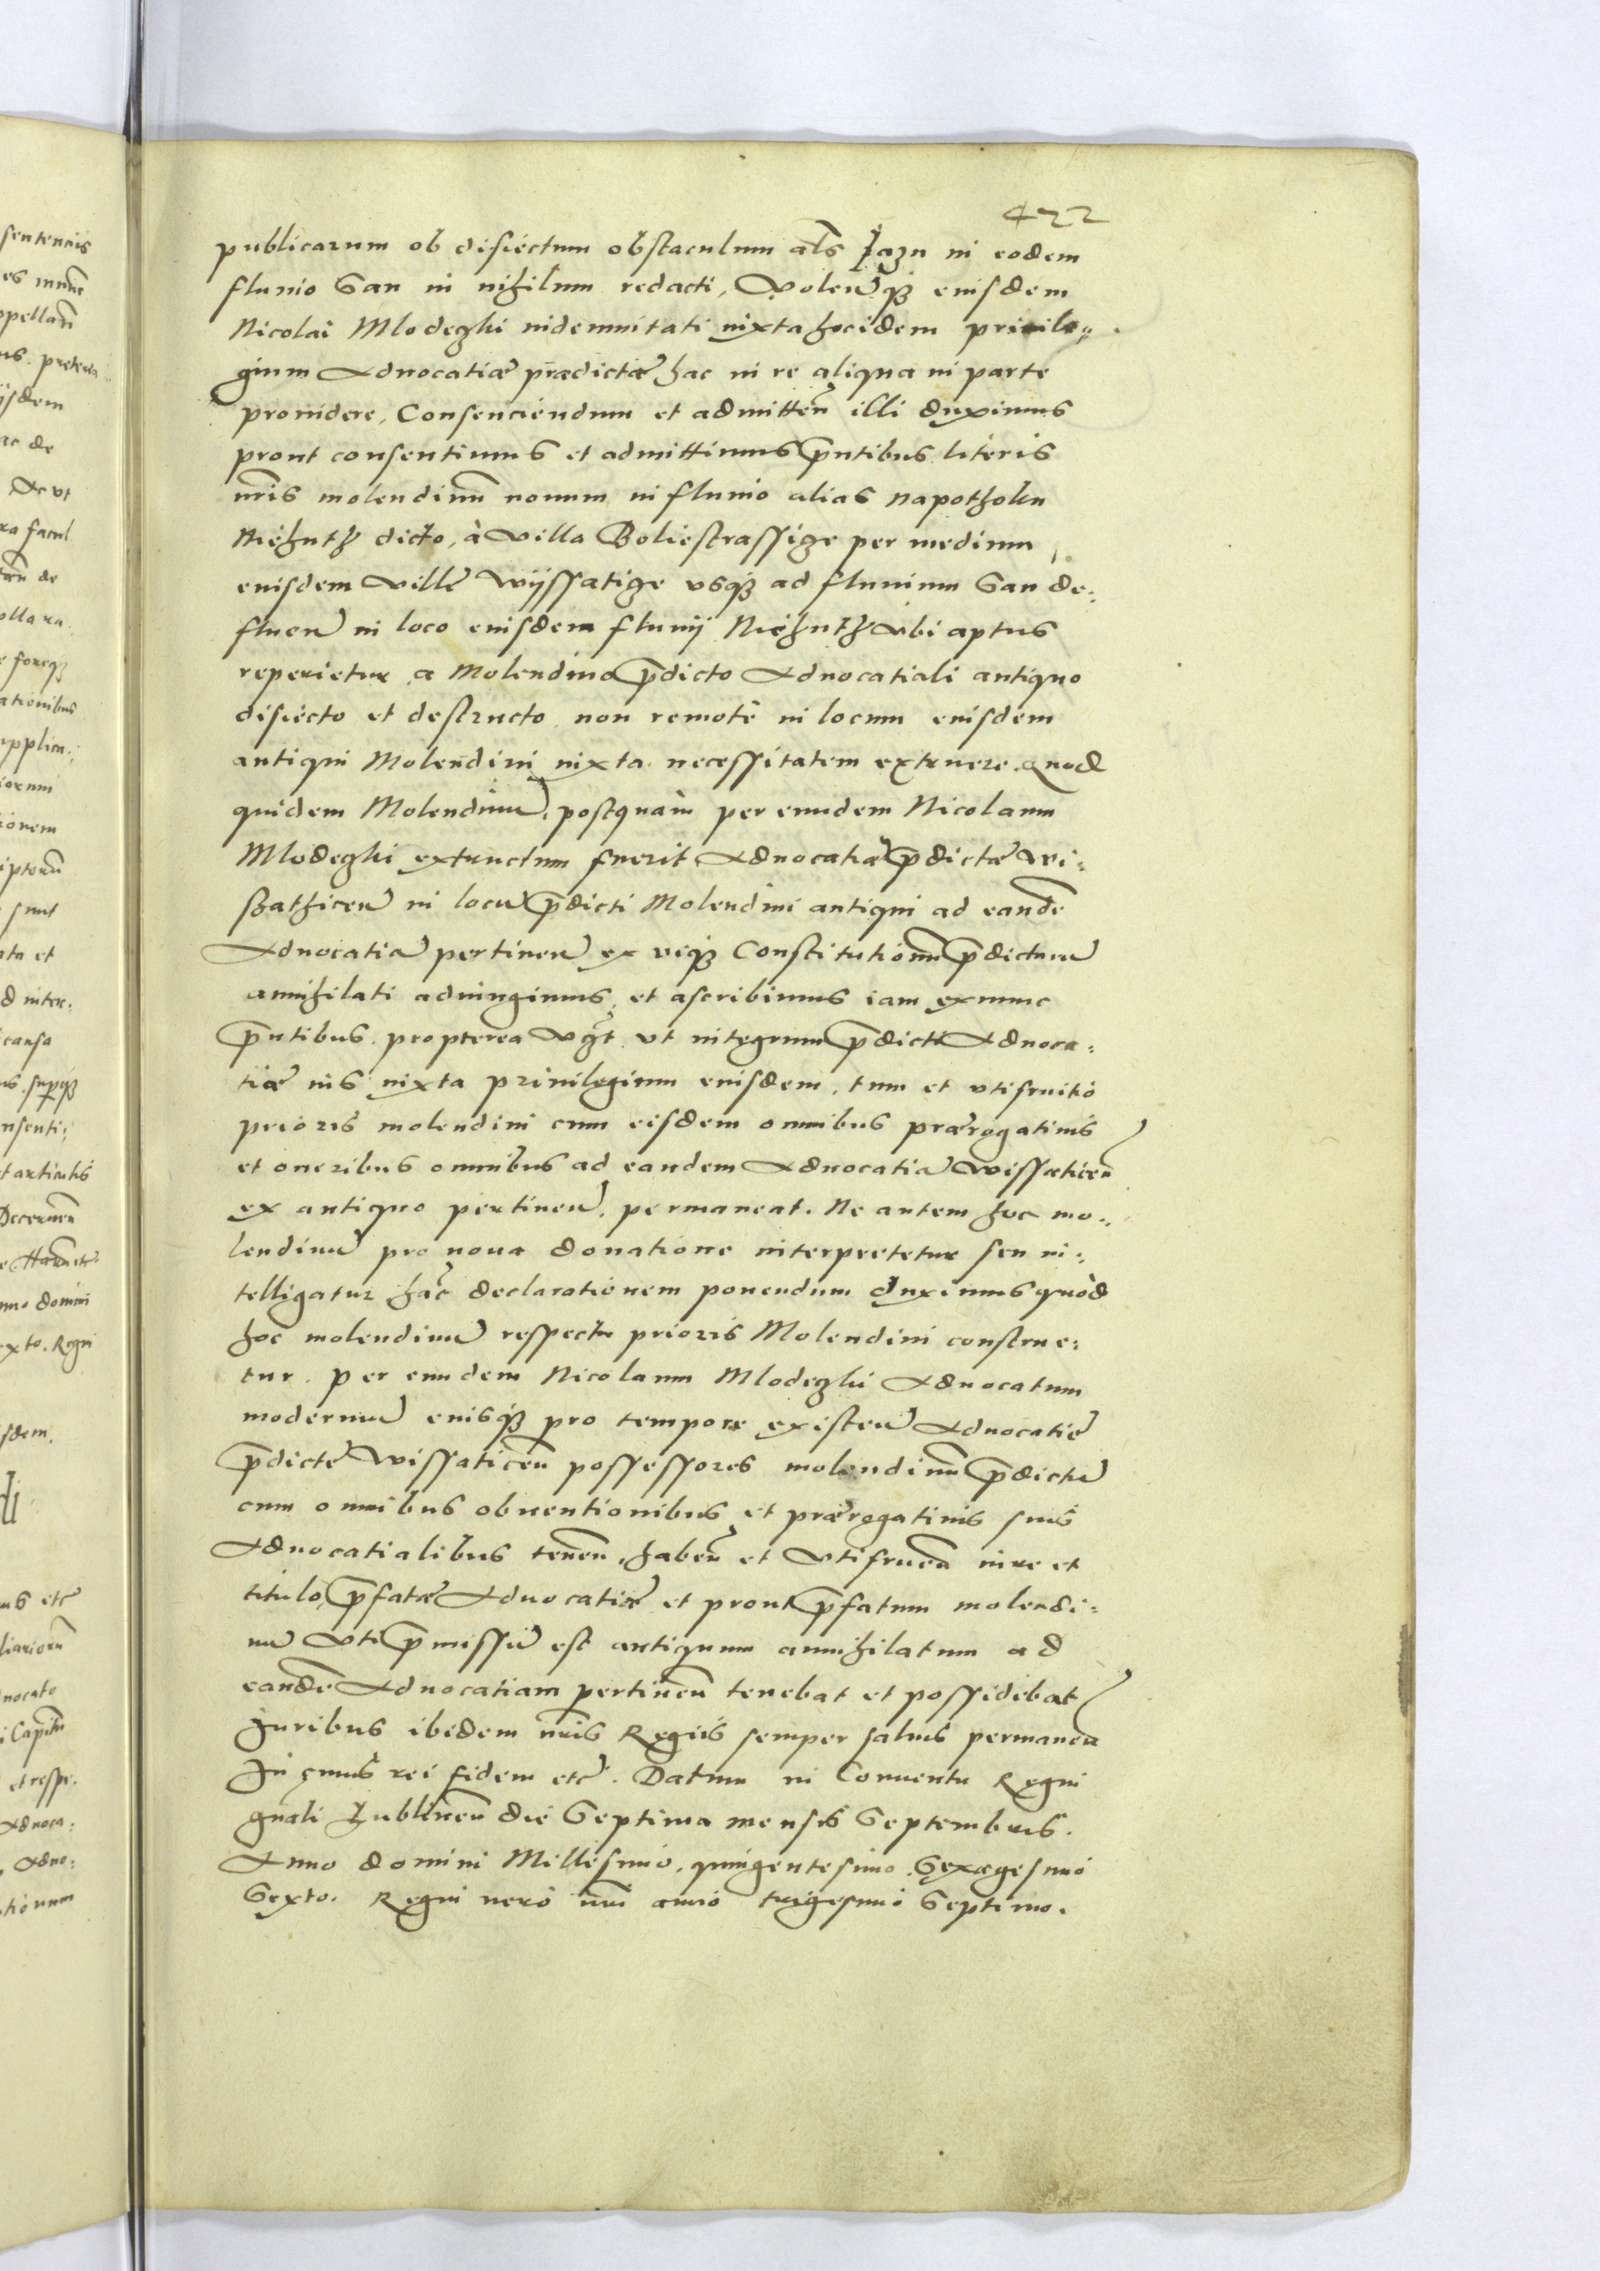 422
publicarum ob disiectum obstaculum als Jazu in eodem
fluuio San in nihilum redacti, Volen̄ q3 eiusdem
Nicolai Mlodeghi indemnitati iuxta hocidem priuile=
gium Aduocatiæ prædictæ hac in re aliqua in parte
prouidere, Consenciendum et admitten̄ illi duximus
prout consentimus et admittimus p̄ntibus literis
nr̄is molendinū nouum in fluuio alias napothoku
Niehuth dicto, à Villa Boliestrassige per medium
eiusdem Villæ Wijssatige vsq3 ad fluuium San de=
fluen̄ in loco eiusdem fluuij Niehuth vbi aptus
reperietur a Molendino p̄dicto Aduocatiali antiquo
disiecto et destructo non remotè in locum eiusdem
antiqui Molendini iuxta necessitatem extruere. Quod
quidem Molendinū, postquàm per eundem Nicolaum
Mlodeghi extructum fuerit Aduocatiæ p̄dictæ Wi=
szathicen̄ in locū p̄dicti Molendini antiqui ad eandē
Aduocatiā pertinen̄ ex viq3 Constitutionū p̄dictarū
annihilati adiungimus et ascribimus iam exnunc
p̄ntibus. propterea vt integrum p̄dictæ Aduoca=
tiæ ius iuxta priuilegium eiusdem, tum et vtifruitio
prioris molendini cum eisdem omnibus prærogatiuis
et oneribus omnibus ad eandem Aduocatiā Wissaticen̄
ex antiquo pertinen̄, permaneat. Ne autem hoc mo=
lendinū pro noua donatione interpretetur seu in=
telligatur hāc declarationem ponendum duximus quòd
hoc molendinū respectu prioris Molendini construe=
tur. per eundem Nicolaum Mlodeghi Aduocatum
modernū eiusq3 pro tempore existen̄ Aduocatiæ
p̄dictæ Wissaticen̄ possessores molendinū p̄dictū
cum omnibus obuentionibus et prærogatiuis suis
Aduocatialibus tenen̄, haben̄ et Vtifruen̄ iure et
titulo p̄fatæ Aduocatiæ et prout p̄fatum molendi=
nū vti p̄missū est antiquum annihilatum ad
eandē Aduocatiam pertinen̄ tenebat et possidebat
Juribus ibidem nr̄is Regiis semper saluis permanen̄
In cuius rei fidem etc̄. Datum in Conuentu Regni
gn̄ali Lublinen̄ die Septima mensis Septembris.
Anno domini Millesimo, quingentesimo Sexagesimo
Sexto. Regni uerò nr̄i anno trigesimo Septimo.